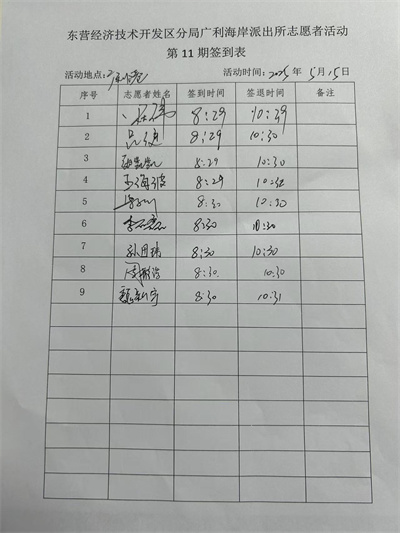 东营经济技术开发区分局广利海岸派出所志愿者活动
第 11 期签到表
活动地点: 活动时间: 2025 年 5月15日
序号 志愿者姓名 签到时间 签退时间 备注
1 8:29 10:29
2 8:29 10:30
3 8:29 10:30
4 王海波 8:29 10:32
5 8:30 10:30
6 8:30 10:30
7 孙国瑞 8:30 10:30
8 8:30 10:30
9 8:30 10:31